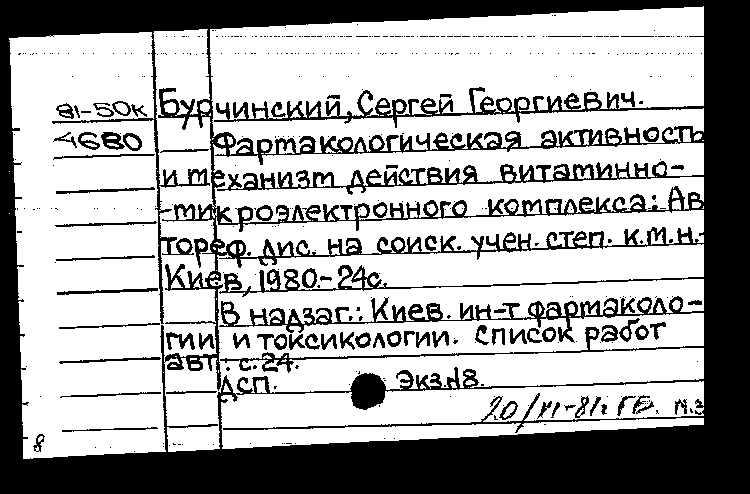 81-50к Бурчинский, Сергей Георгиевич.
4680 Фармакологическая активность
и механизм действия витаминно-
-микроэлектронного комплекса: Ав
тореф. дис. на соиск. учен. степ. к.м.н.-
Киев, 1980.-24с.
В надзаг.: Киев. ин-т фармаколо-
гии и токсикологии. Список работ
авт.: с.24.
ДСП. Экз.№8.
20/VI-81г. ГБ.
8